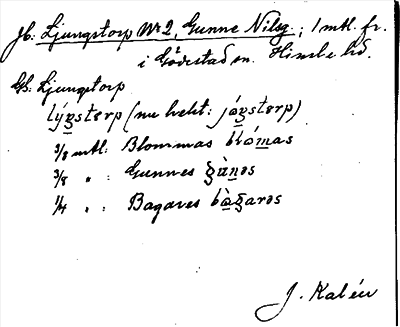 Jb. Ljungstorp Nr 2, Gunne Nilsg.; 1 mtl. fr.
i Gödestad sn. Himle hd.
Gb. Ljungstorp
lýŋstɛrp (nu helt: jóŋstɛrp)
3/8 mtl. Blommas blómas
3/8 " : Gunnes gùnos
1/4 " : Bagares bàgaros
J. Kalén